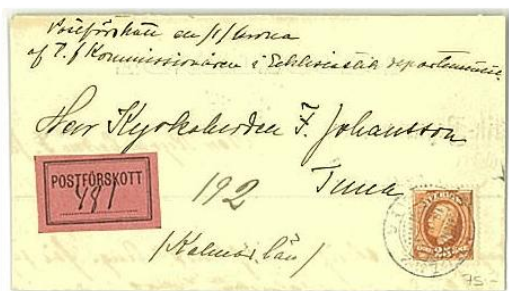 Postförskott en /1/ krona
af T. f Kommissionären i Ecklesiastik departementet
Herr Kyrkoherden F. Johansson
POSTFÖRSKOTT
192
Tuna
/Kalmar län/
25
75-